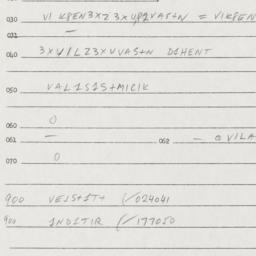 030 VI KPEN3XZ 3XUP1VAS+N = VIKPEN
031 —
040 3XVILZ3XUVAS+N D1HENT
050 VAL1S1S+MICIK
060 0
061 — 062 — 0 VILA
070 0
900 VE1S+1T+ (/024041
900 1ND1TIR (/177050